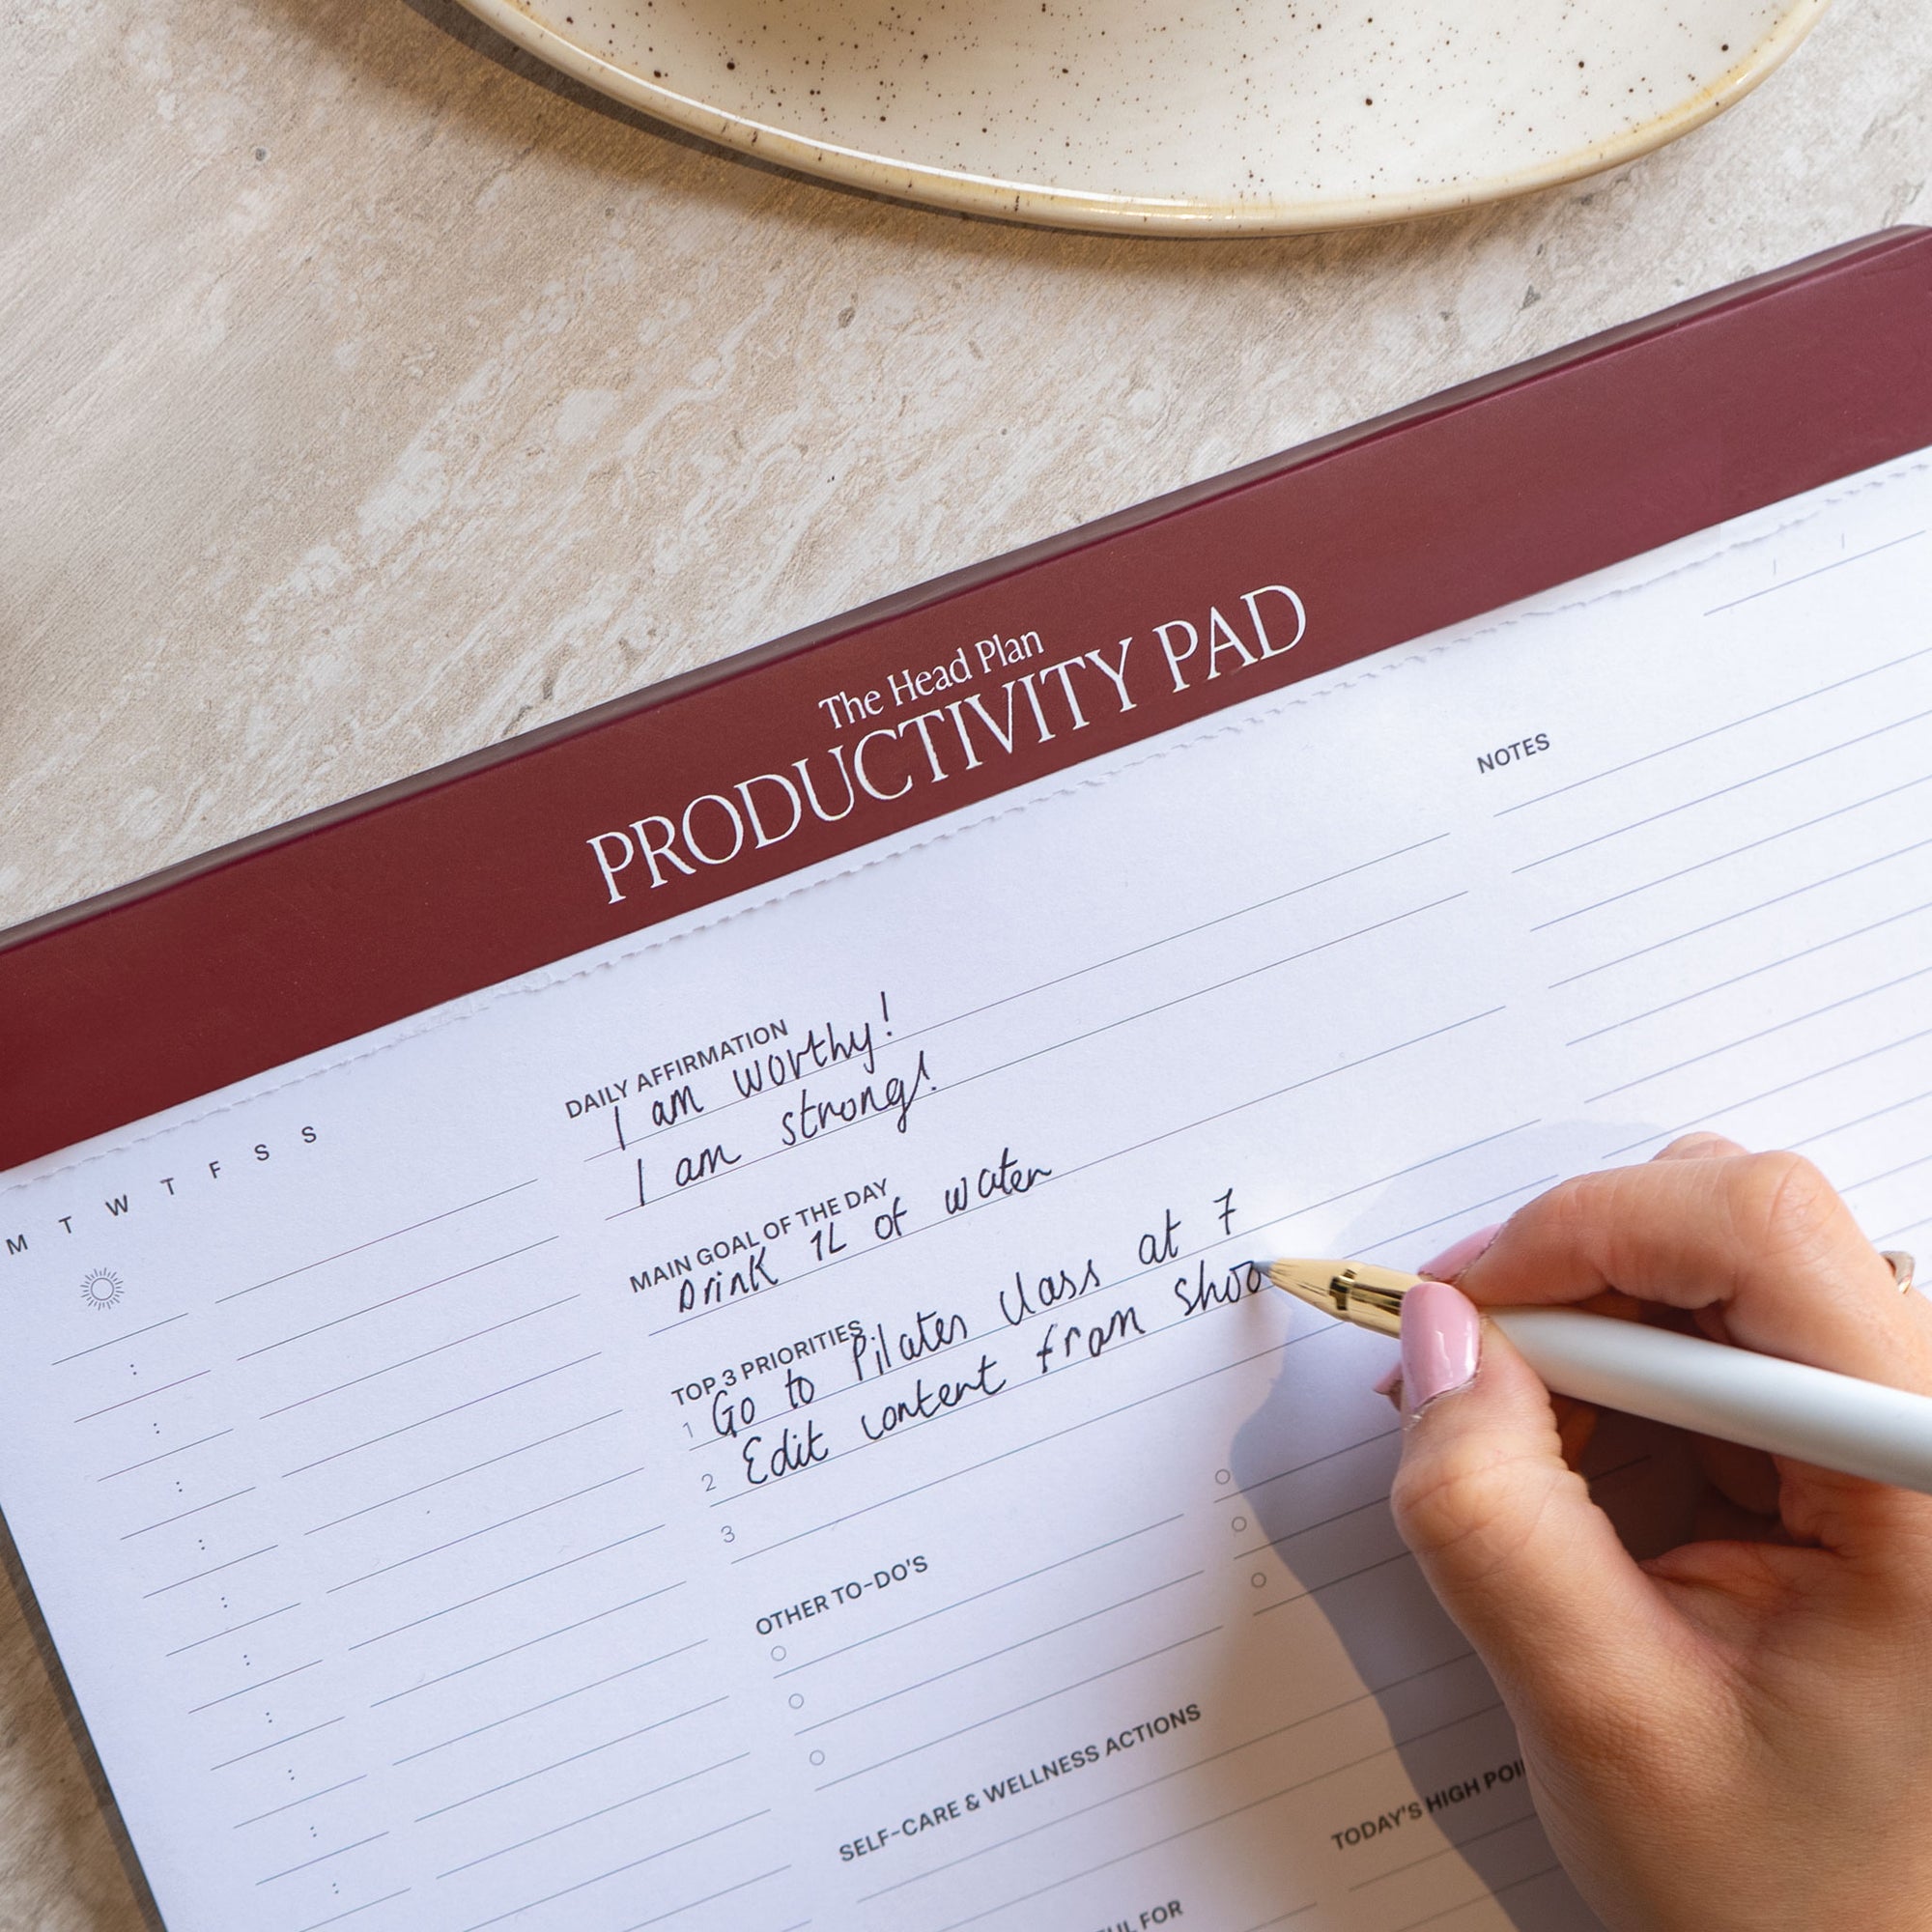 The Head Plan
PRODUCTIVITY PAD
M T W T F S S
DAILY AFFIRMATION
I am worthy!
I am strong!
MAIN GOAL OF THE DAY
Drink 1L of water
TOP 3 PRIORITIES
1 Go to Pilates class at 7
2 Edit content from shoo
3
OTHER TO-DO'S
SELF-CARE & WELLNESS ACTIONS
TODAY'S HIGH
FOR
NOTES